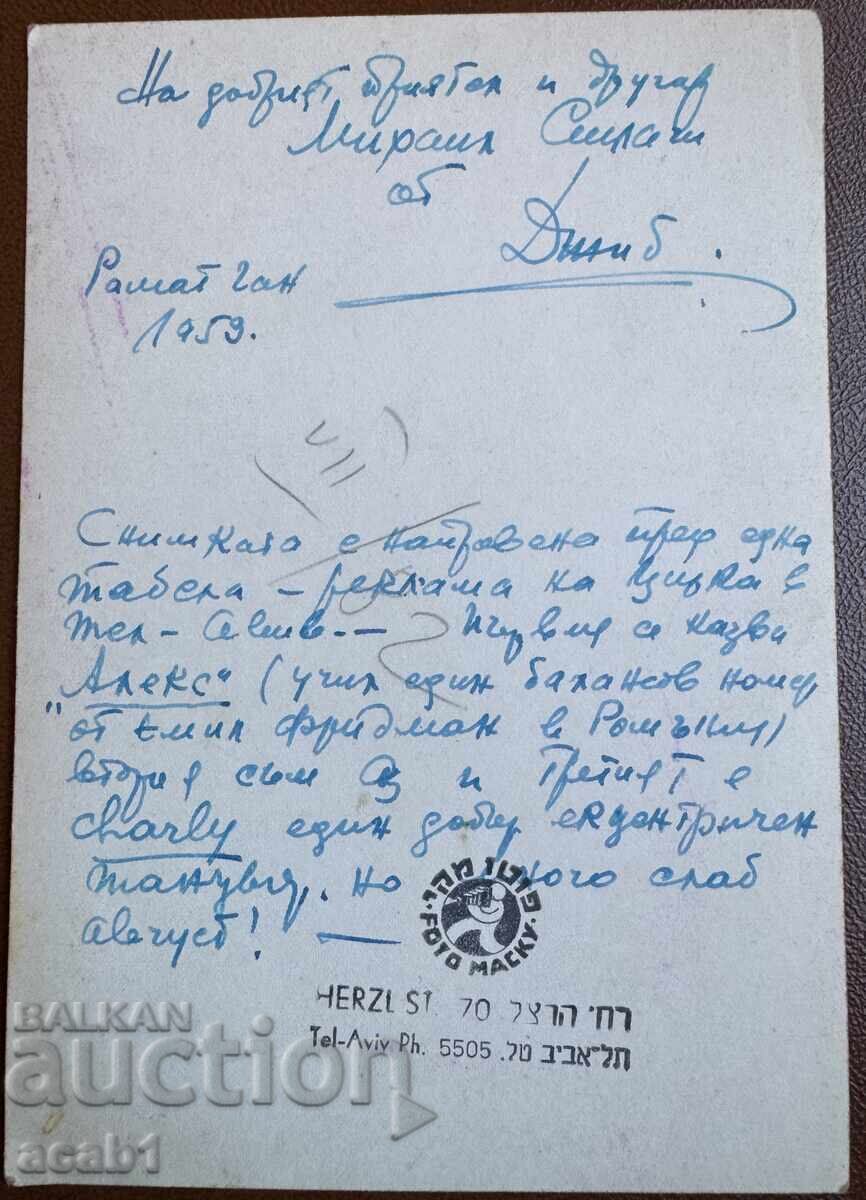 На добрият приятел и другар
Михаил
от
Джиб.
Рамат Ган
1959.
VII
Снимката е направена пред една
табела – реклама на цирка в
Тел-Авив. – Първия се казва
"Алекс" (учил един балансов номер
от Емил Фридман в Ромъния)
втория съм аз и третият е
charly един добър ексцентричен
танцьор, но много слаб
август! —
פוטו מקי
FOTO MACKY
HERZL ST. 70 רח' הרצל
Tel-Aviv Ph. 5505 תל-אביב טל.
BALKAN
auction
acab1